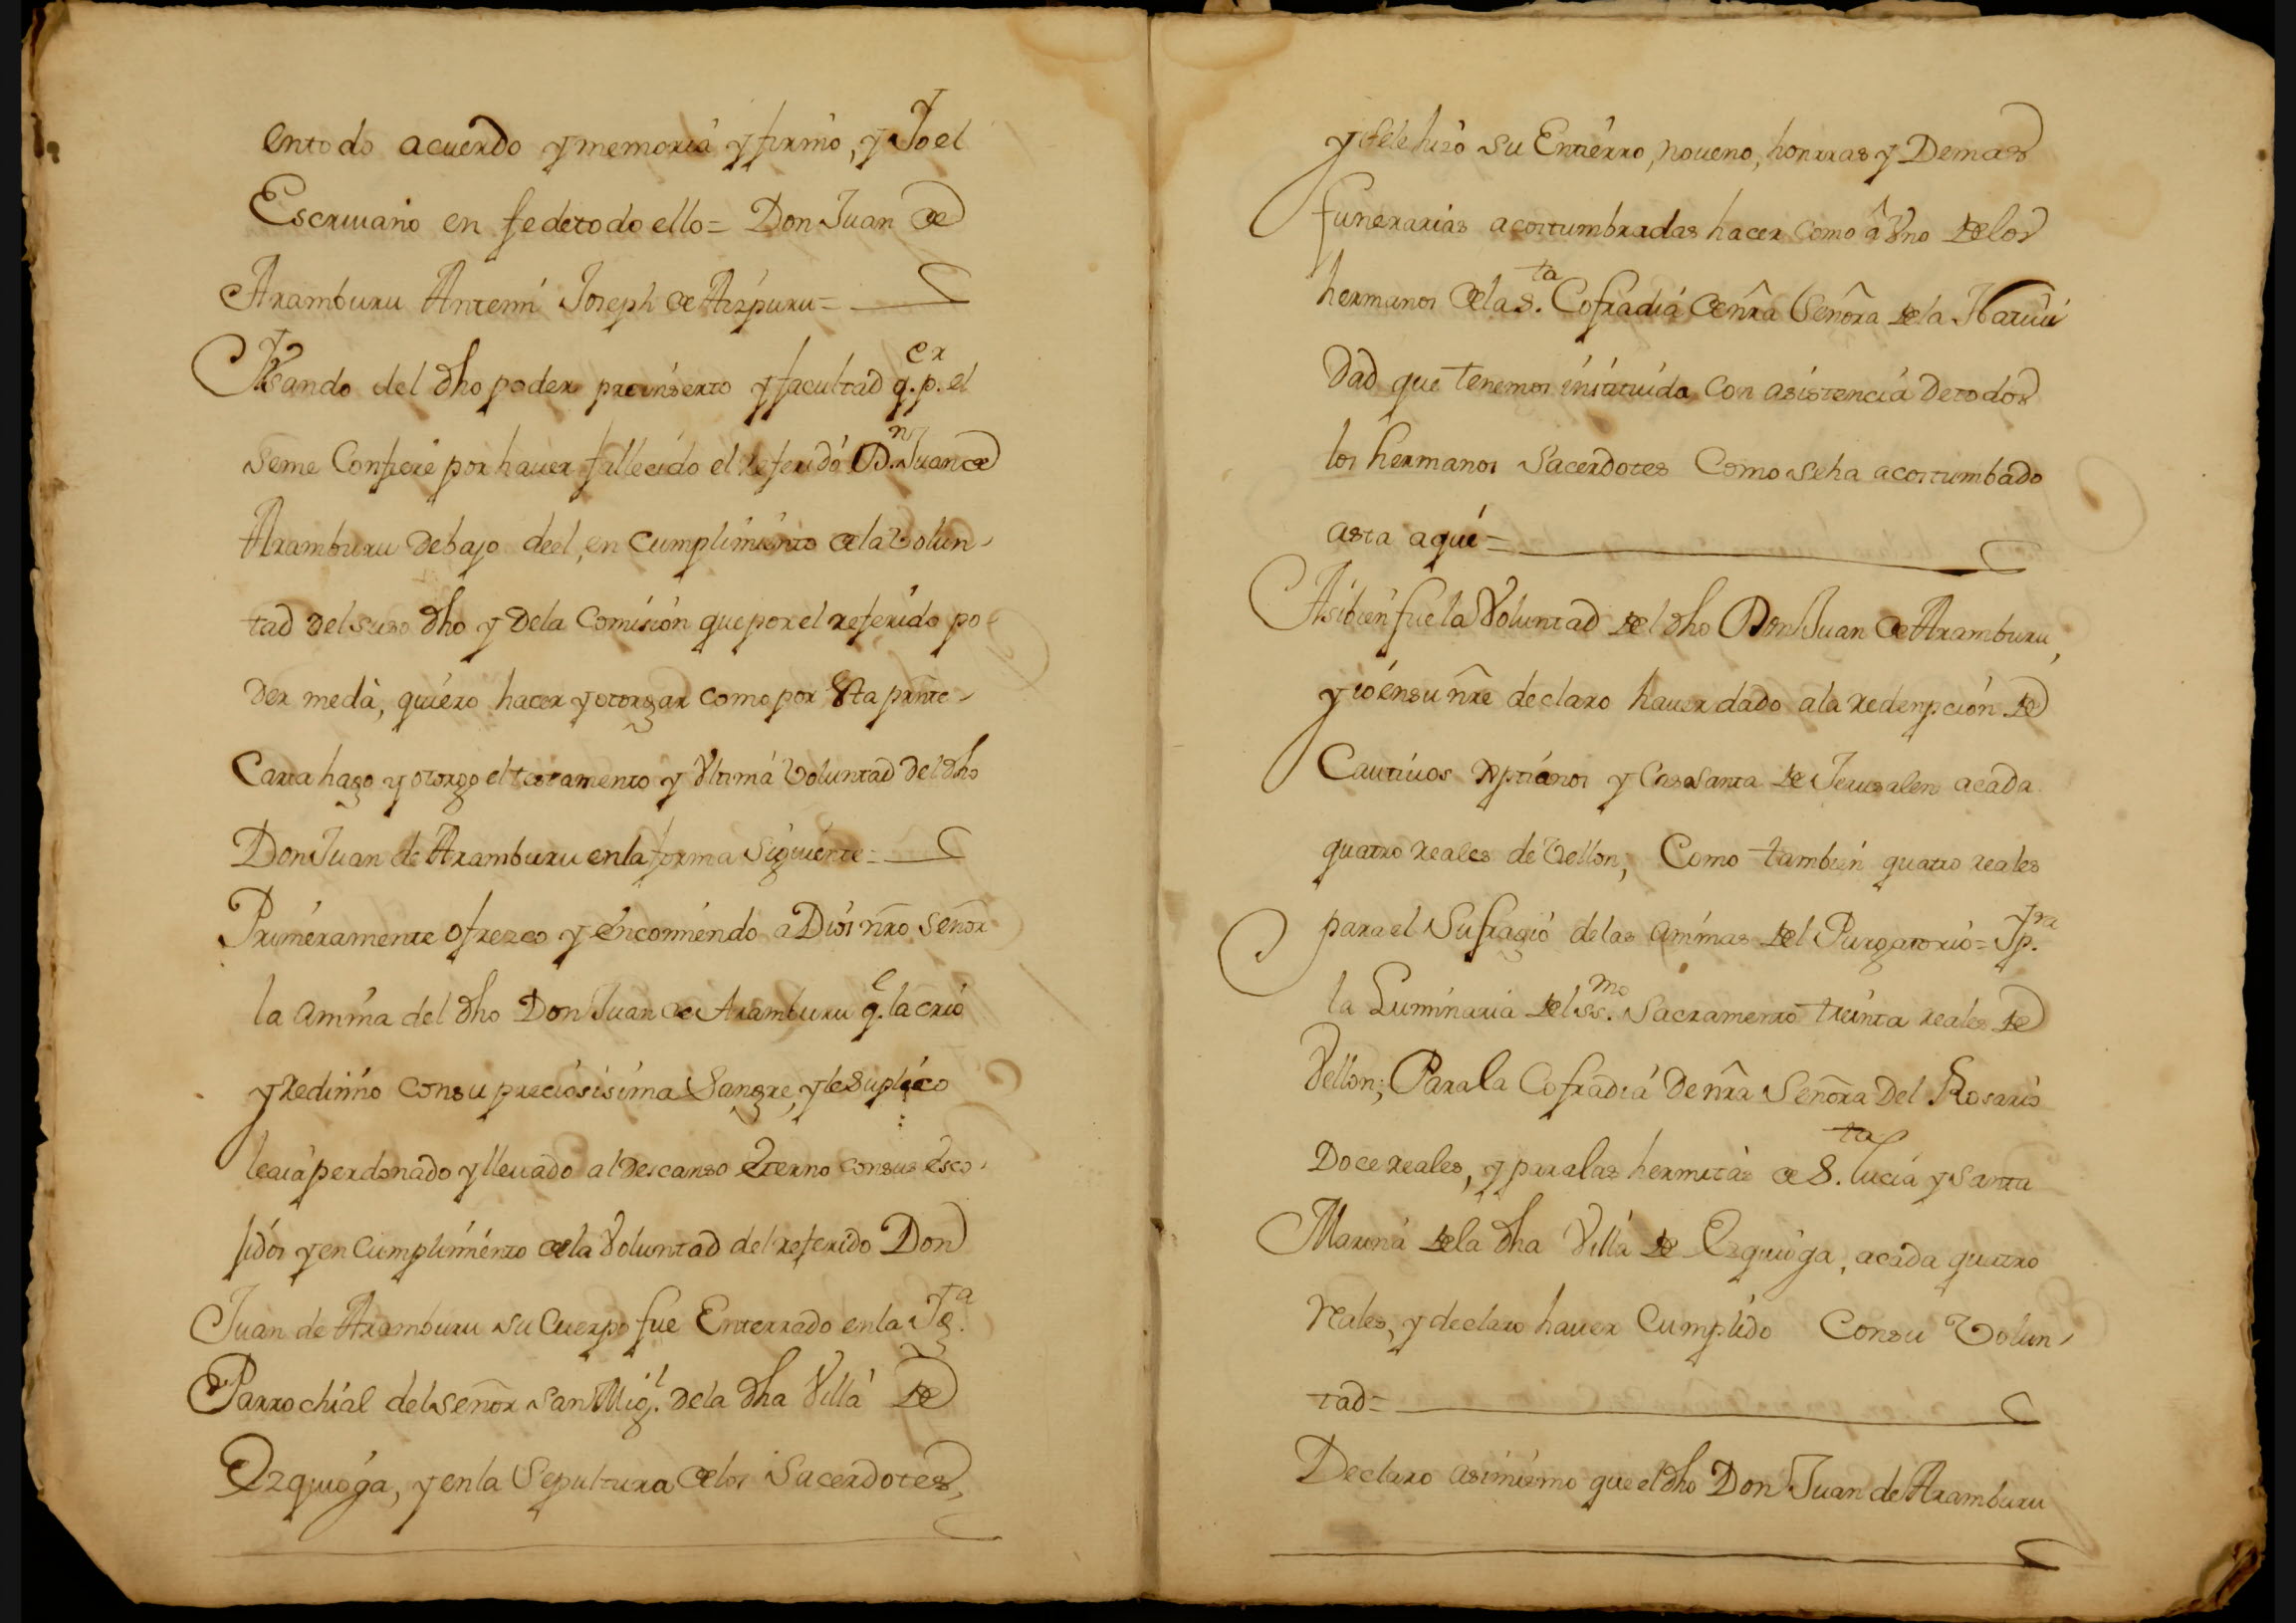 entodo acuerdo y memoria y firmò, y Yo el
Escriuano en fe detodo ello = Don Juan de
Aramburu Antemi Joseph de Aizpuru =
Vsando del dho poder preinserto y facultad q.e p.r el
seme Confiere por hauer fallecido el referido D.n Juan de
Aramburu debajo deel, en cumplimiento dela volun-
tad del suso dho y dela Comision que por el referido po-
der medà, quiero hacer y otorgar como por esta prnte
Carta hago y otorgo el testamento y Vltima voluntad del dho
Don Juan de Aramburu enla forma siguiente =
Primeramente ofrezco y encomiendo a Dios nro señor
la anima del dho Don Juan de Aramburu q.e la crio
y redimio consu preciosisima Sangre, y le suplico
leaia perdonado y lleuado al descanso eterno consus esco-
jidos y en cumplimiento dela Voluntad del referido Don
Juan de Aramburu su Cuerpo fue Enterrado enla Yg.a
Parrochial del señor san Mig.l dela dha Villa de
Ezquioga, y enla Sepultura delos Sacerdotes,
y sele hizo su Entierro, noueno, honrras y Demas
funerarias acostumbradas hacer como â Vno delos
hermanos dela S.ta Cofradia de nra Señora dela Natiui
dad que tenemos instituida con asistencia detodos
los hermanos Sacerdotes Como seha acostumbado
asta aqui =
Asibien fue la Voluntad del dho Don Juan de Aramburu,
y io ensu nre declaro hauer dado ala redenpcion de
Cautiuos xptianos y Casa Santa de Jerusalen acada
quatro reales de vellon; Como tambien quatro reales
para el Sufragio delas animas del Purgatorio = Yp.ra
la Luminaria del ss.mo Sacramento treinta reales de
Vellon; Para la Cofradia De nra Señora Del Rosario
Doce reales, y para las hermitas de S.ta Lucia y Santa
Marina dela dha Villa de Ezquioga, acada quatro
reales, y declaro hauer Cumplido Consu Volun-
tad =
Declaro asimismo que el dho Don Juan de Aramburu